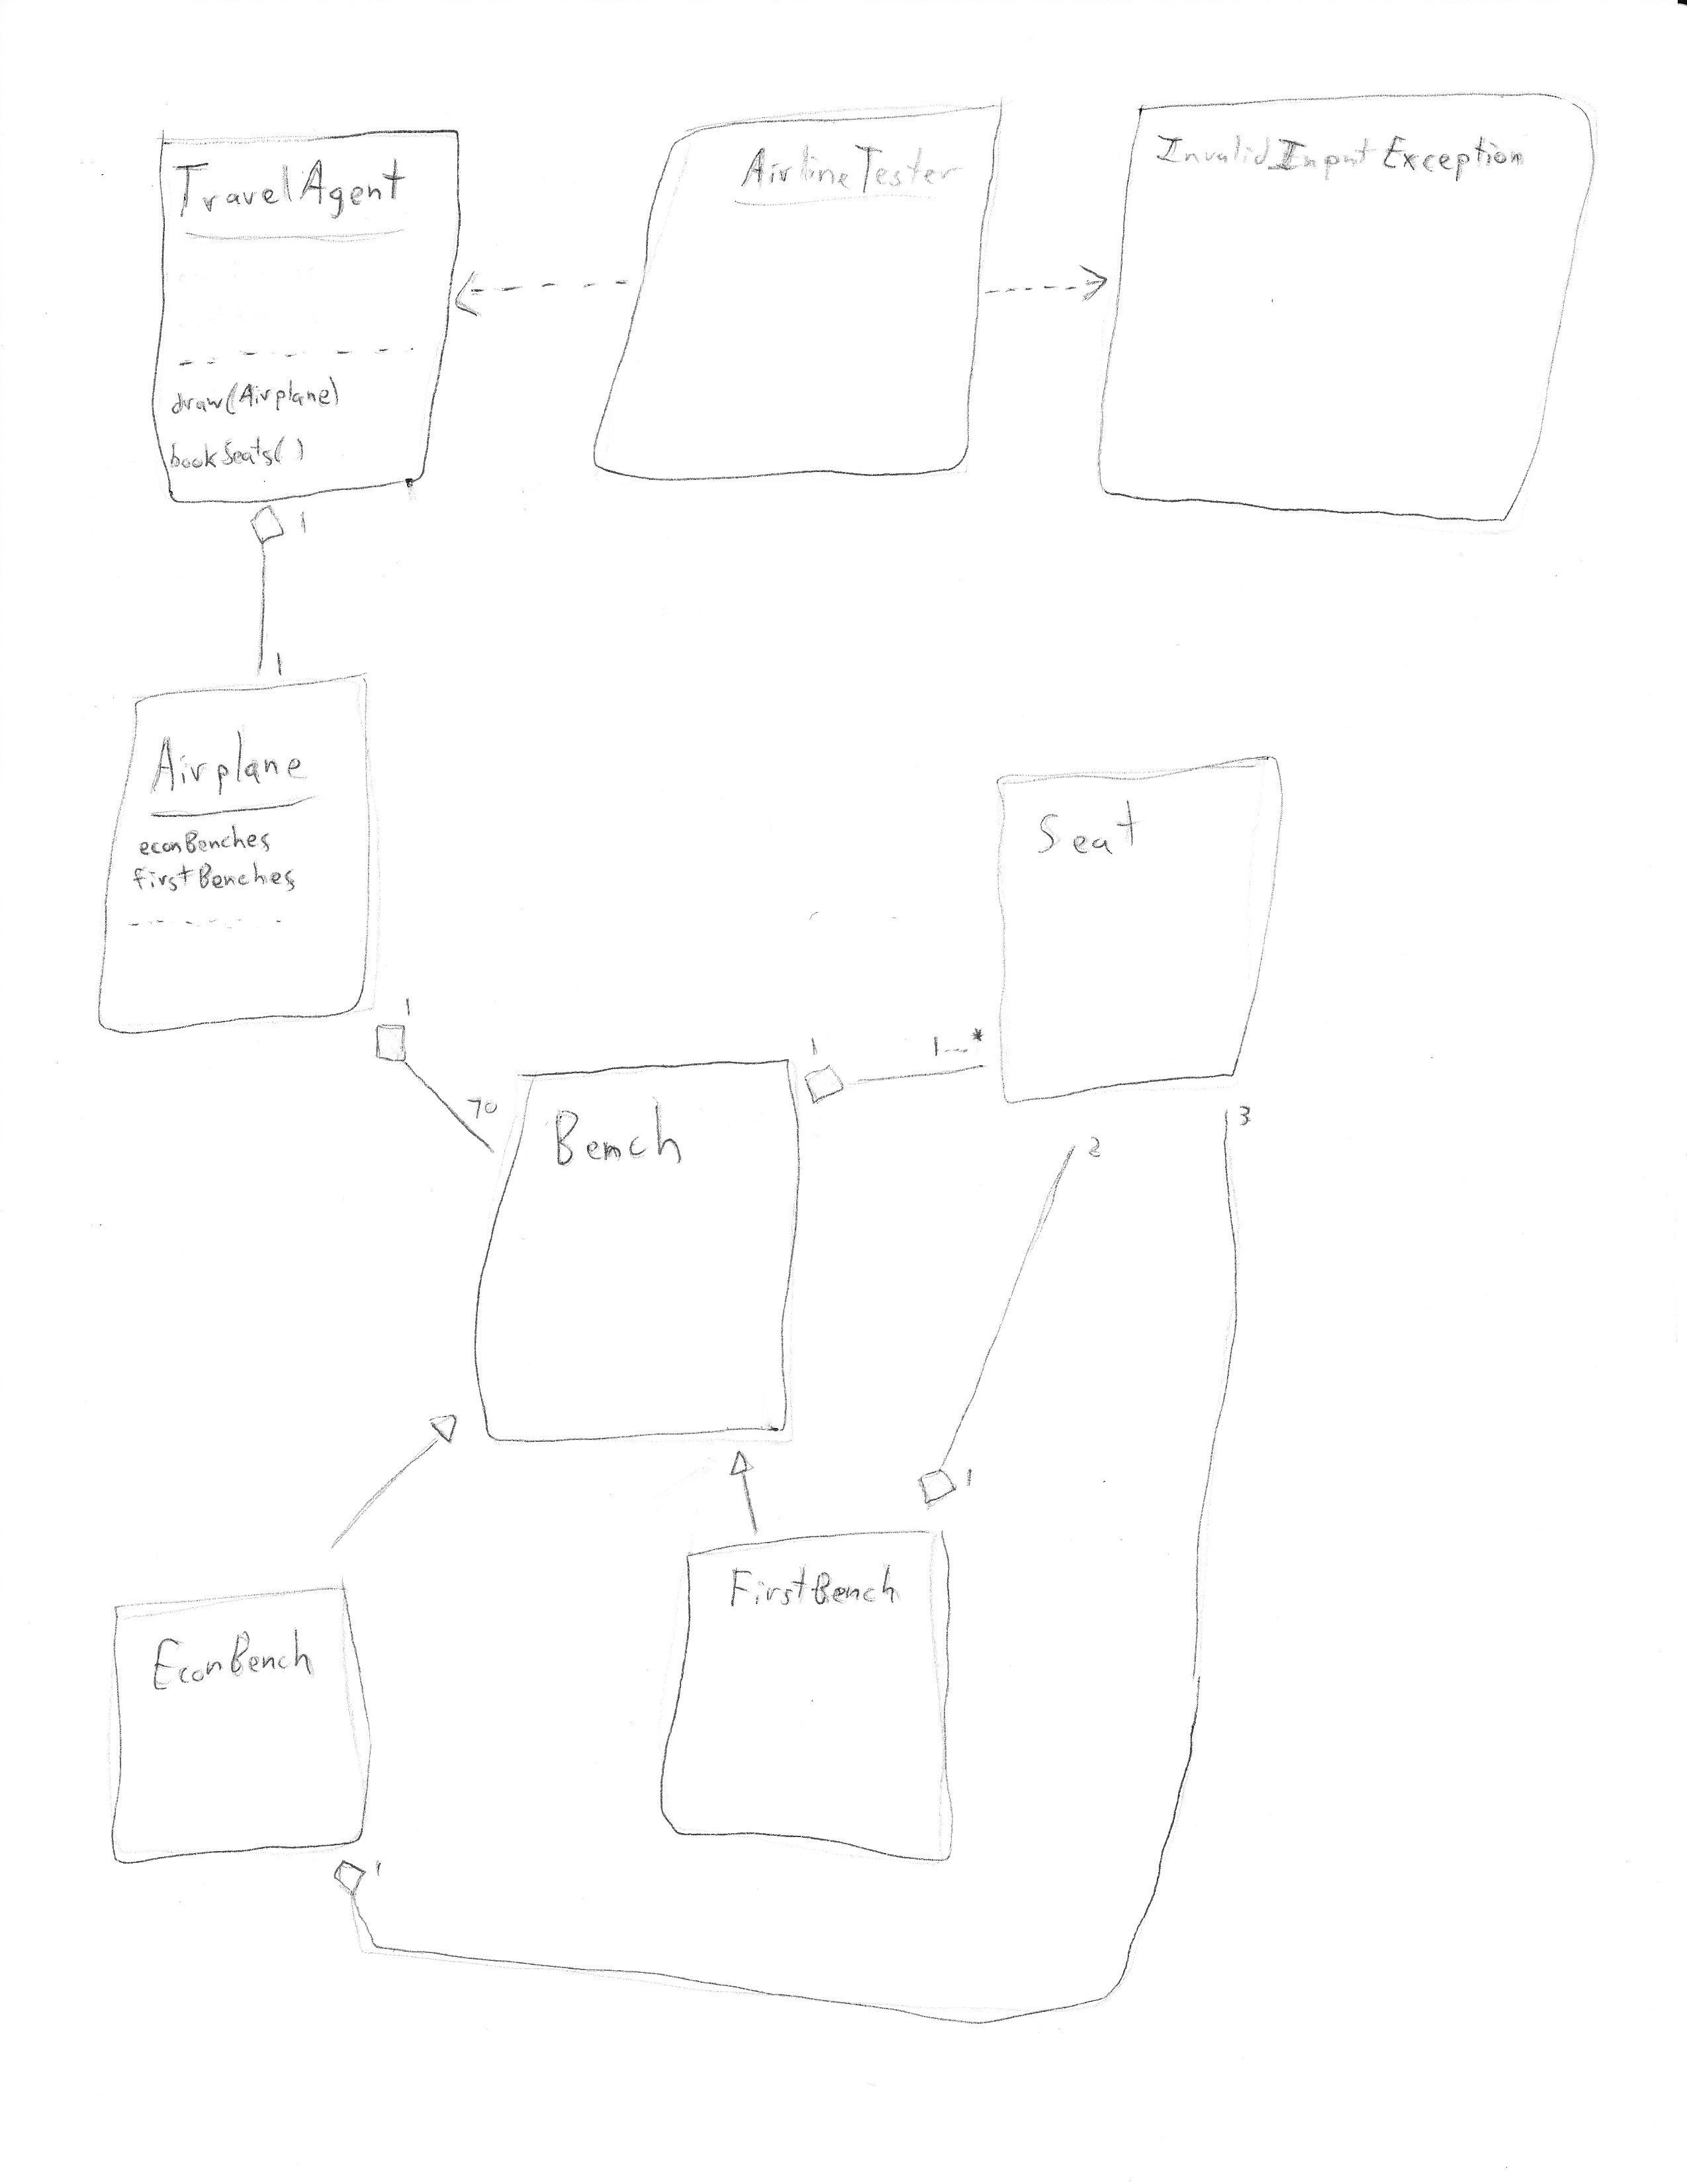 TravelAgent
draw(Airplane)
bookSeats()
1
1
AirlineTester
InvalidInputException
Airplane
econBenches
firstBenches
1
70
Seat
1
1...*
Bench
2
3
1
FirstBench
EconBench
1